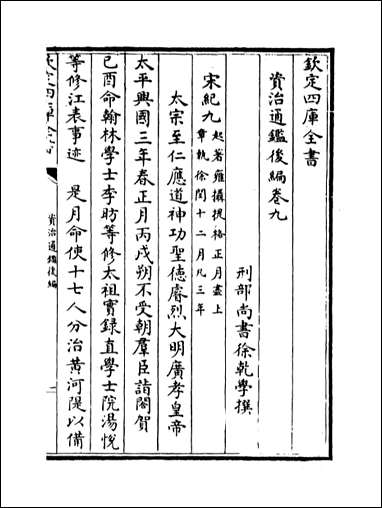 欽定四庫全書
資治通鑑後編卷九
刑部尚書徐乾學撰
宋紀九起著雍攝提格正月盡上
章執徐閏十二月凡三年
太宗至仁應道神功聖德睿烈大明廣孝皇帝
太平興國三年春正月丙戌朔不受朝羣臣詣閤賀
己酉命翰林學士李昉等修太祖實録直學士院湯悅
等修江表事迹 是月命使十七人分治黄河隄以備
欽定四庫全書
資治通鑑後編
一